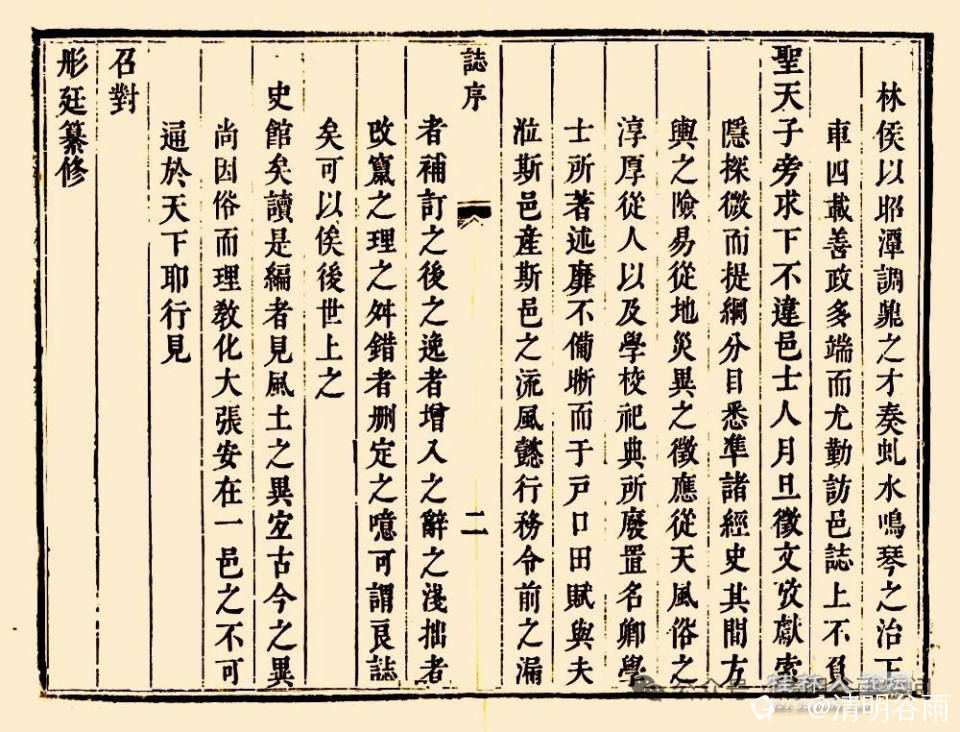 林侯以昭潭調鼎之才奏虬水鳴琴之治下
車四載善政多端而尤勤訪邑誌上不負
聖天子旁求下不違邑士人月旦徵文攷獻索
隱探微而提綱分目悉準諸經史其間方
輿之險易從地災異之徵應從天風俗之
淳厚從人以及學校祀典所廢置名卿學
士所著述靡不備晰而于戸口田賦與夫
涖斯邑產斯邑之流風懿行務令前之漏
誌序
二
者補訂之後之逸者增入之辭之淺拙者
改竄之理之舛錯者删定之噫可謂良誌
矣可以俟後世上之
史館矣讀是編者見風土之異宐古今之異
尚因俗而理教化大張安在一邑之不可
遍於天下耶行見
召對
彤廷纂修
@清明谷雨